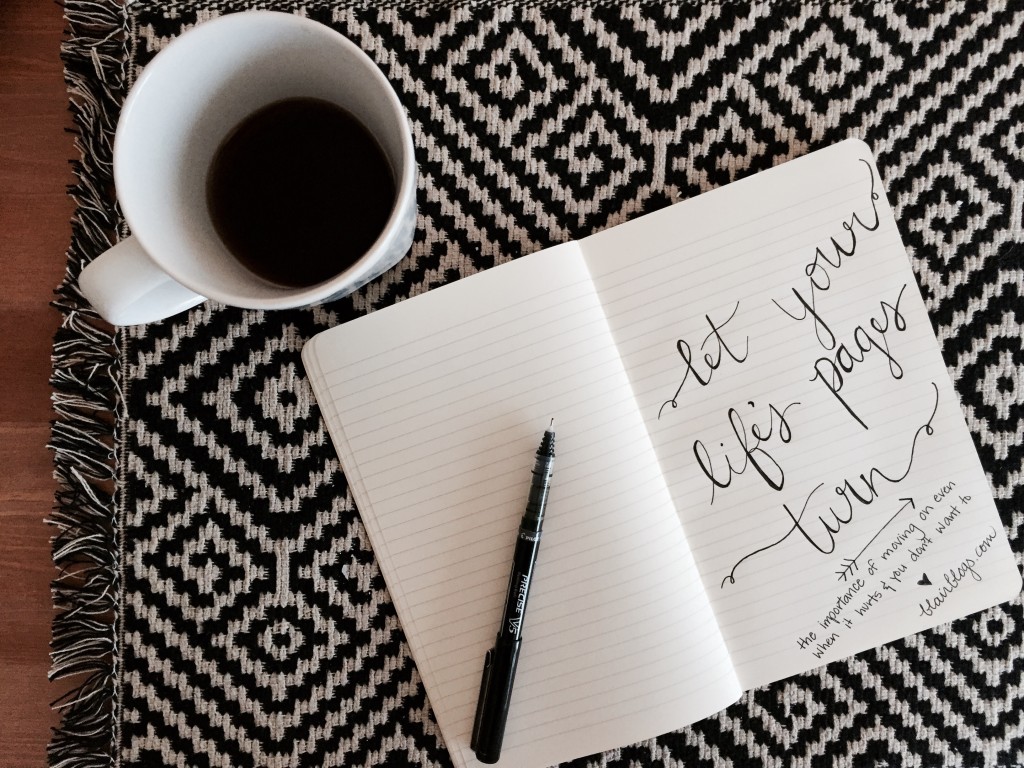 let your
life's pages
turn
the importance of moving on even
when it hurts & you don't want to
blairblogs.com
PRECISE V5